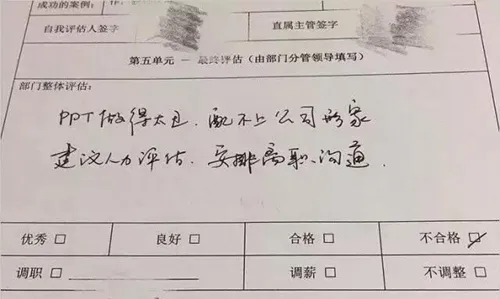 成功的案例：
自我评估人签字
直属主管签字
第五单元 — 最终评估（由部门分管领导填写）
部门整体评估：
PPT做得太丑，配不上公司形象
建议人力评估，安排离职沟通．
优秀 □ 良好 □ 合格 □ 不合格 ☑
调职 □ 调薪 □ 不调整 □